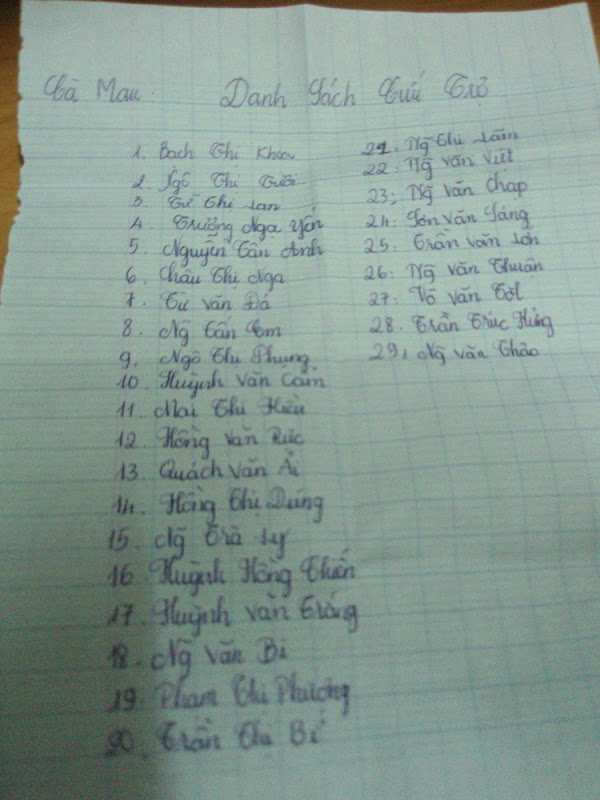 Cà Mau: Danh Sách Cứu Trợ
1. Bạch Thị Khoa
2. Ngô Thị Tười
3 Từ Thị Lan
4. Trương Nga Yến
5. Nguyễn Tấn Anh
6. Châu Thị Nga
7. Từ Văn Đá
8. Ng̃ Tấn Em
9. Ngô Thị Phụng
10. Huỳnh Văn Cảm
11. Mai Thị Hiếu
12. Hồng Văn
13. Quách Văn Ải
14. Hồng Thị Dúng
15. Ng̃ Trà Ly
16. Huỳnh Hồng Thiến
17. Huỳnh Văn Trắng
18. Ng̃ Văn Bi
19. Phạm Thị Phượng
20. Trần Thị Bé
21. Ng̃ Thị Lãm
22. Ng̃ Văn Việt
23. Ng̃ Văn Chap
24. Sơn Văn Sáng
25. Trần Văn Lớn
26. Ng̃ Văn Thuân
27. Võ Văn Tơl
28. Trần Trúc Hưng
29, Ng̃ Văn Thảo